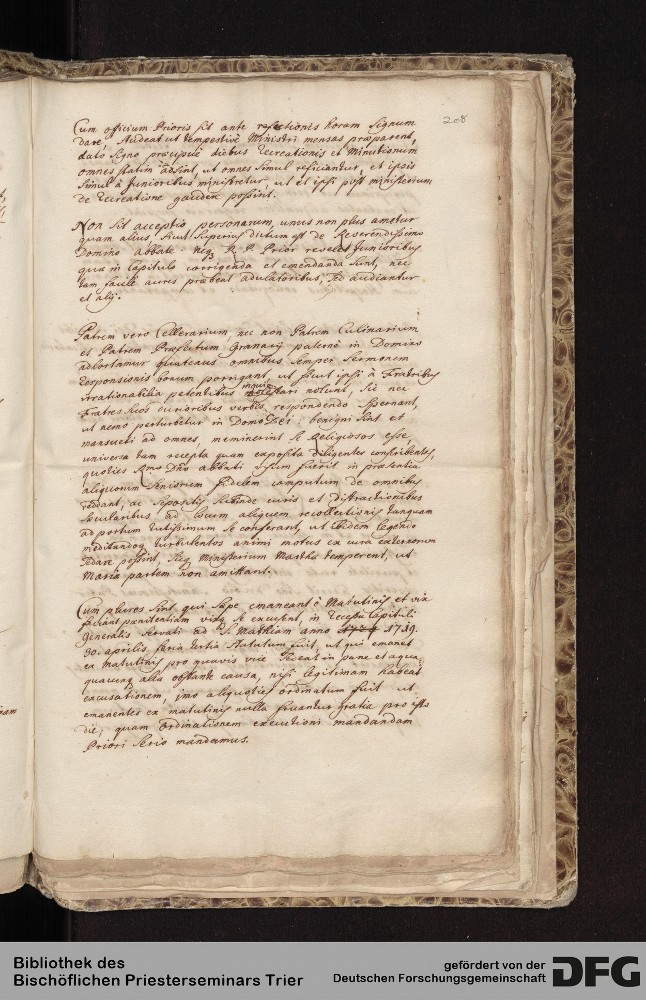 208
Cum officium Prioris sit ante refectionis horam signum
dare, studeat ut tempestivè Ministri mensas præparent,
dato signo præcipuè diebus recreationis et Minutionum
omnes statim adsint, ut omnes simul reficiantur, et ipsis
simul à Junioribus ministretur, ut et ipsi post ministerium
de recreatione gaudere possint.
Non sit acceptio personarum, unus non plus ametur
quam alius, sicut superius dictum est de Reverendissimo
Domino abbate. neq3 R. P. Prior revelet Junioribus
quæ in Capitulo corrigenda et emendanda sunt, nec
tam facilè aures præbeat adulatoribus, sed audiantur
et alij.
Patrem vero Cellerarium, nec non Patrem Culinarium
et Patrem Præfectum Granarij paternè in Domino
adhortamur quatenus omnibus semper sermonem
responsionis bonum porrigant, ut sicut ipsi à Fratribus
irrationabilia petentibus inquietari nolunt, sic nec
Fratres suos durioribus verbis respondendo spernant,
ut nemo perturbetur in Domo Dei: benigni sint et
mansueti ad omnes, meminerint se Religiosos esse,
universa tam recepta quam exposita diligenter conscribentes,
quoties Rmo Dno abbati visum fuerit in præsentia
aliquorum Seniorum fidelem computum de omnibus
reddant, ac sepositis subinde curis et distractionibus
sæcularibus ad locum aliquem recollectionis tanquam
ad portum tutissimum se conferant, ut ibidem legendo
meditandoq turbulentos animi motus ex cura externorum
sedare possint, sicq Ministerium Marthæ temperent, ut
Mariæ partem non amittant.
Cum plures sint qui sæpe emaneant è Matutinis et vix
faciant pœnitentiam visq se excusent, in recessu Capituli
Generalis servati ad S. Mathiam anno 1719.
30. aprilis, feria tertia statutum fuit, ut qui emanet
ex matutinis pro quavis vice sedeat in pane et aqua
quacunq alia obstante causa, nisi legitimam habeat
excusationem, imo aliquoties ordinatum fuit ut
emanentes ex matutinis nulla fruantur gratia pro isto
die; quam ordinationem executioni mandandam
Priori serio mandamus.
Bibliothek des
Bischöflichen Priesterseminars Trier
gefördert von der
Deutschen Forschungsgemeinschaft
DFG